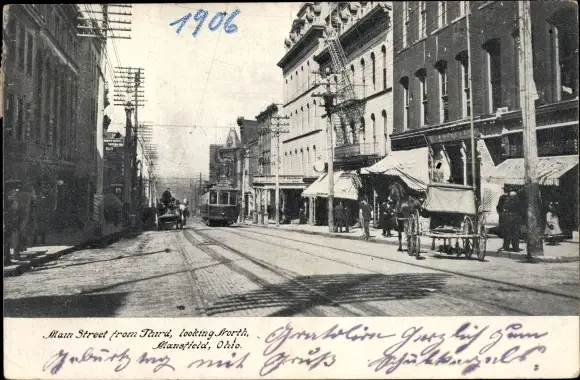 1906
Main Street from Third, looking North,
Mansfield, Ohio.
Gratolire Herzlich zum
Geburtztag mit Gruß